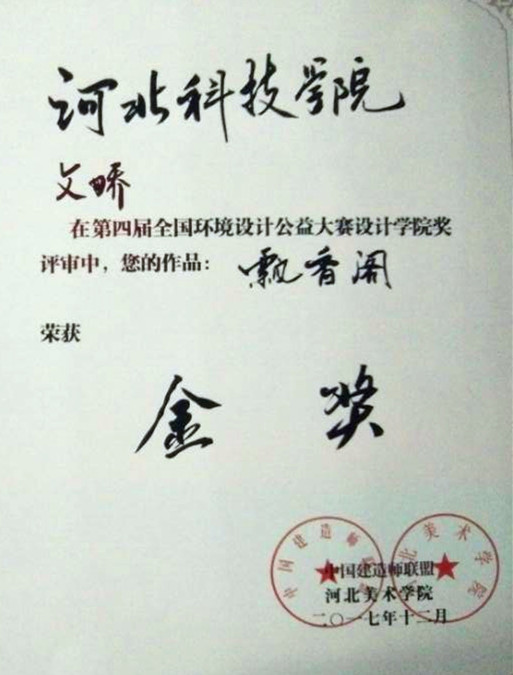 河北科技学院
文皭
在第四届全国环境设计公益大赛设计学院奖
评审中，您的作品：飘香阁
荣获
金奖
中国建造师联盟
河北美术学院
二〇一七年十二月
中国建造师联盟
河北美术学院